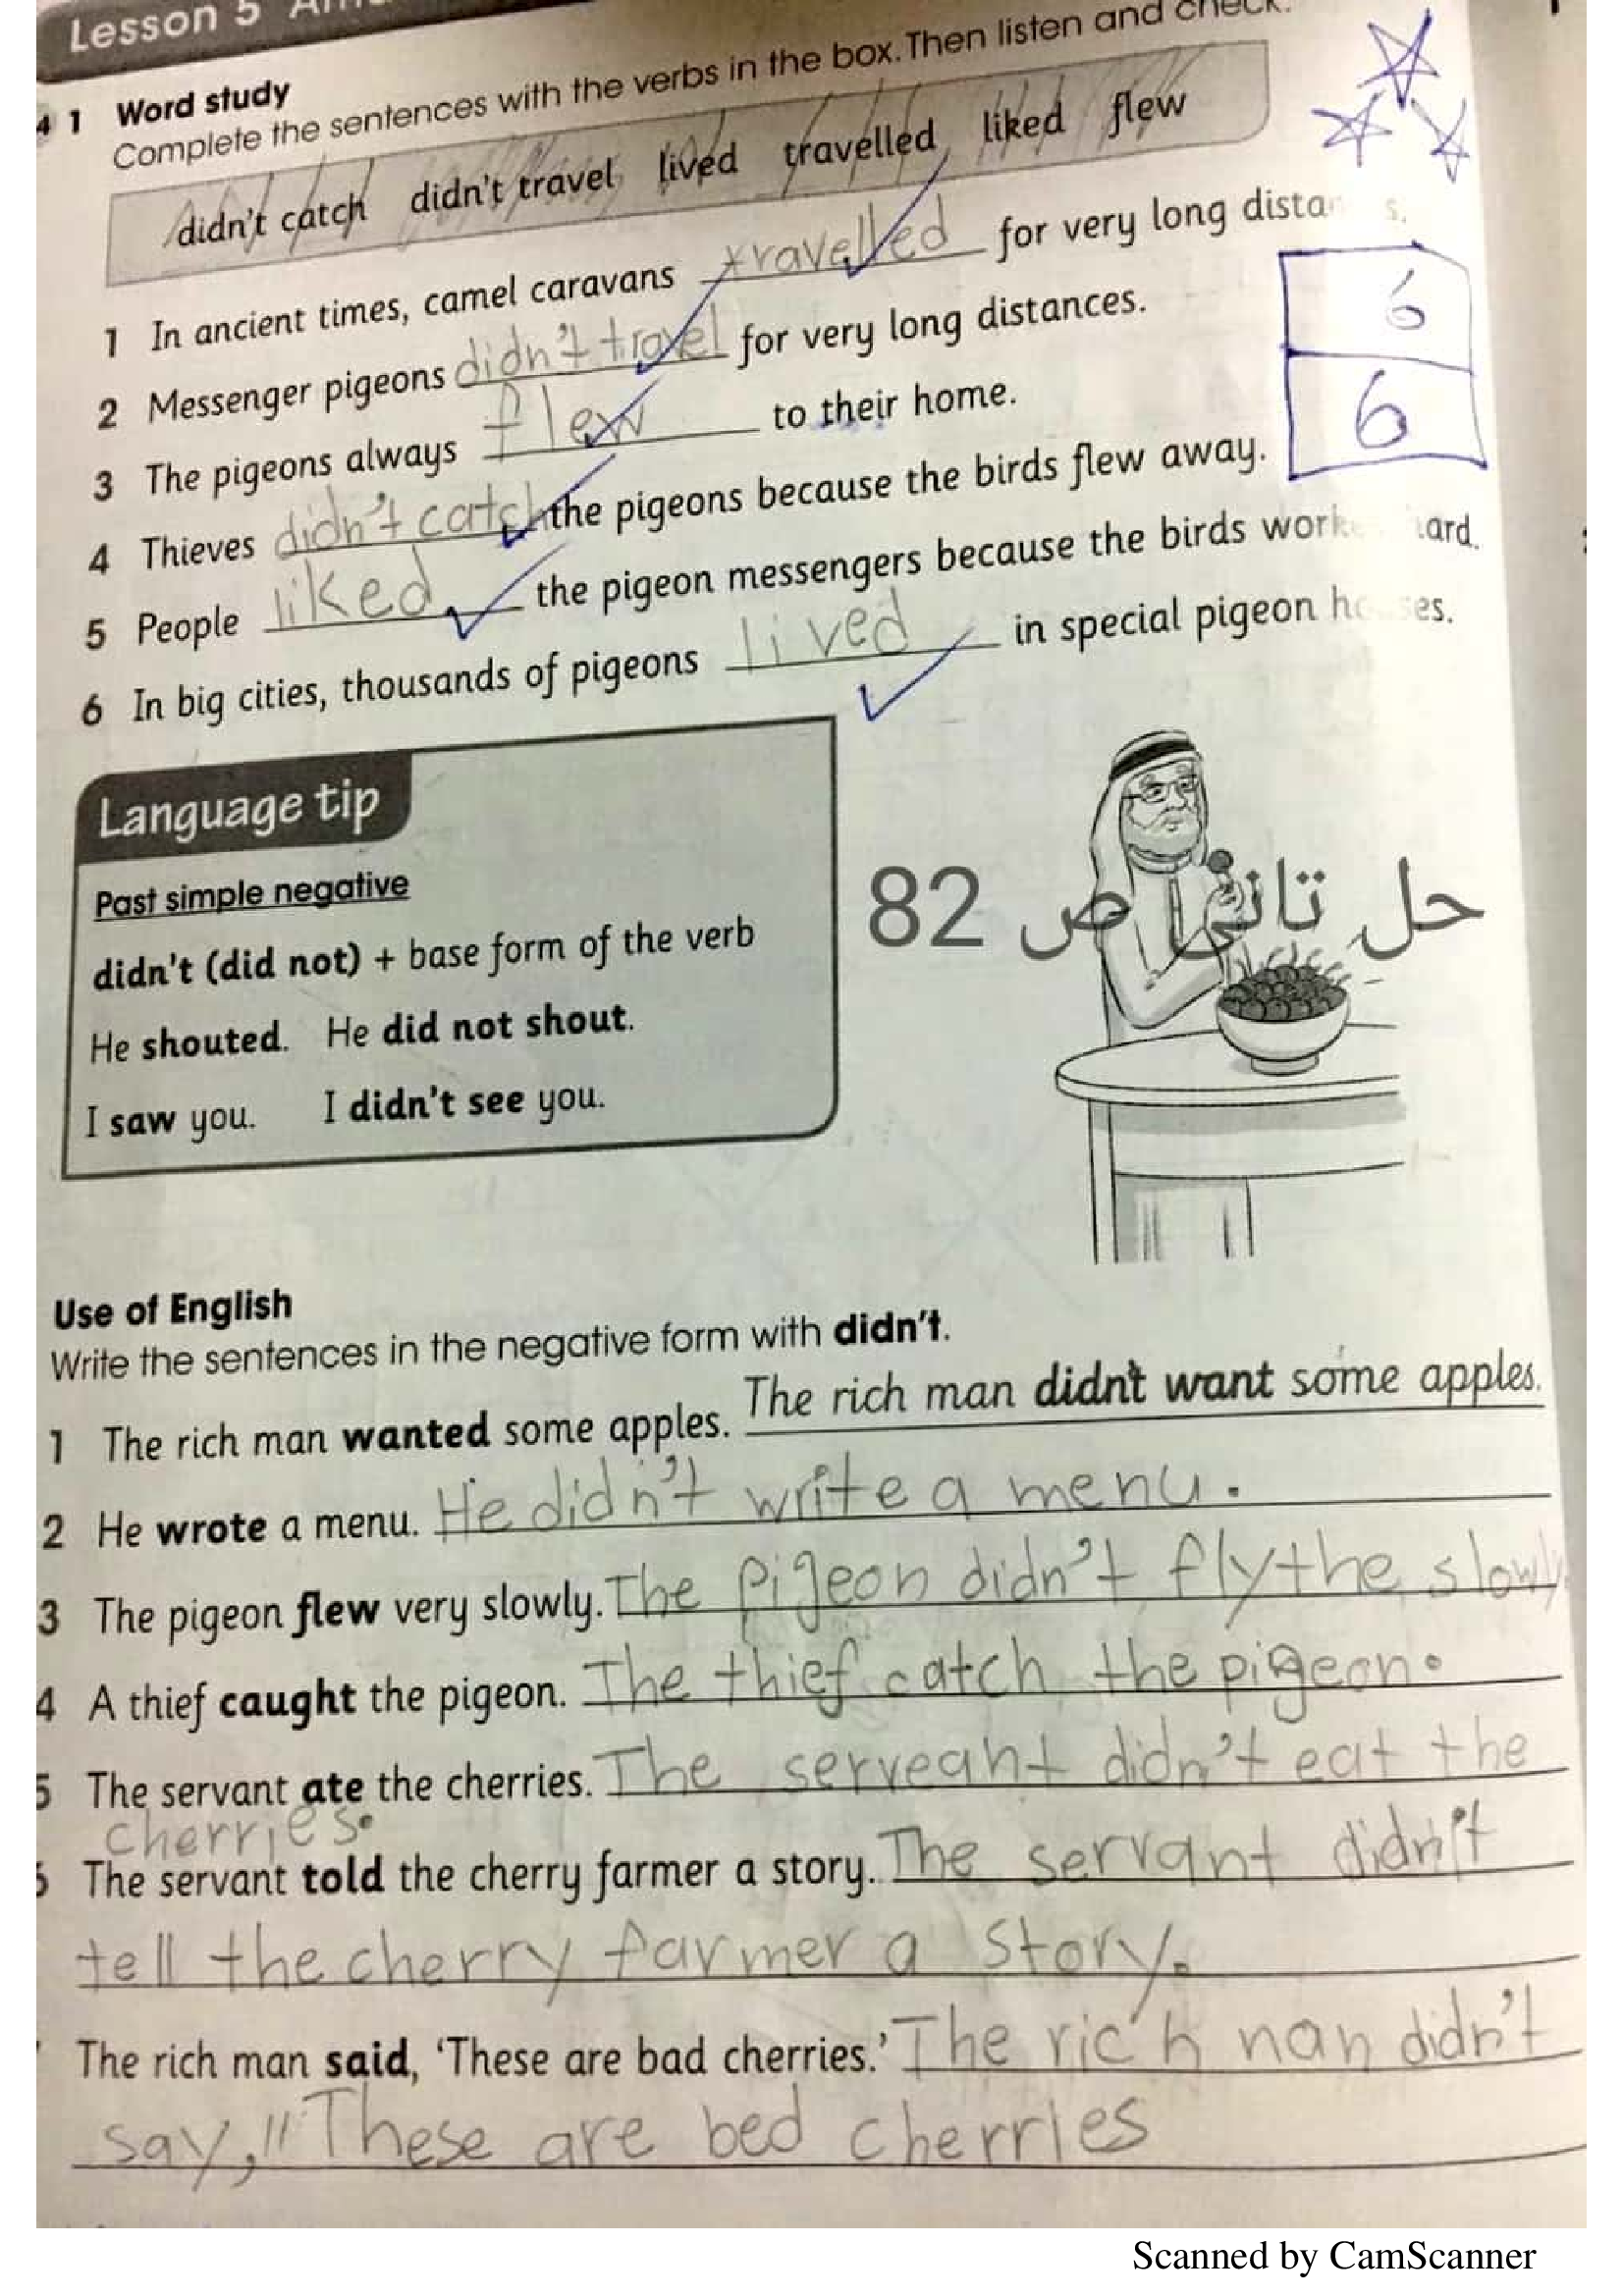 Lesson 5
4 1 Word study
Complete the sentences with the verbs in the box. Then listen and check.
didn't catch didn't travel lived travelled liked flew
1 In ancient times, camel caravans travelled for very long
2 Messenger pigeons didn't travel for very long distances.
3 The pigeons always flew to their home.
4 Thieves didn't catch the pigeons because the birds flew away.
5 People liked the pigeon messengers because the birds
6 In big cities, thousands of pigeons lived in special pigeon
6
6
Language tip
Past simple negative
didn't (did not) + base form of the verb
He shouted. He did not shout.
I saw you. I didn't see you.
حل تاني ص 82
Use of English
Write the sentences in the negative form with didn't.
1 The rich man wanted some apples. The rich man didn't want some apples.
2 He wrote a menu. He didn't write a menu.
3 The pigeon flew very slowly. The pigeon didn't fly the slowly
4 A thief caught the pigeon. The thief catch the pigeon.
5 The servant ate the cherries. The serveant didn't eat the
cherries.
The servant told the cherry farmer a story. The servant didn't
tell the cherry farmer a story.
The rich man said, 'These are bad cherries.' The rich nan didn't
say, "These are bed cherries
Scanned by CamScanner